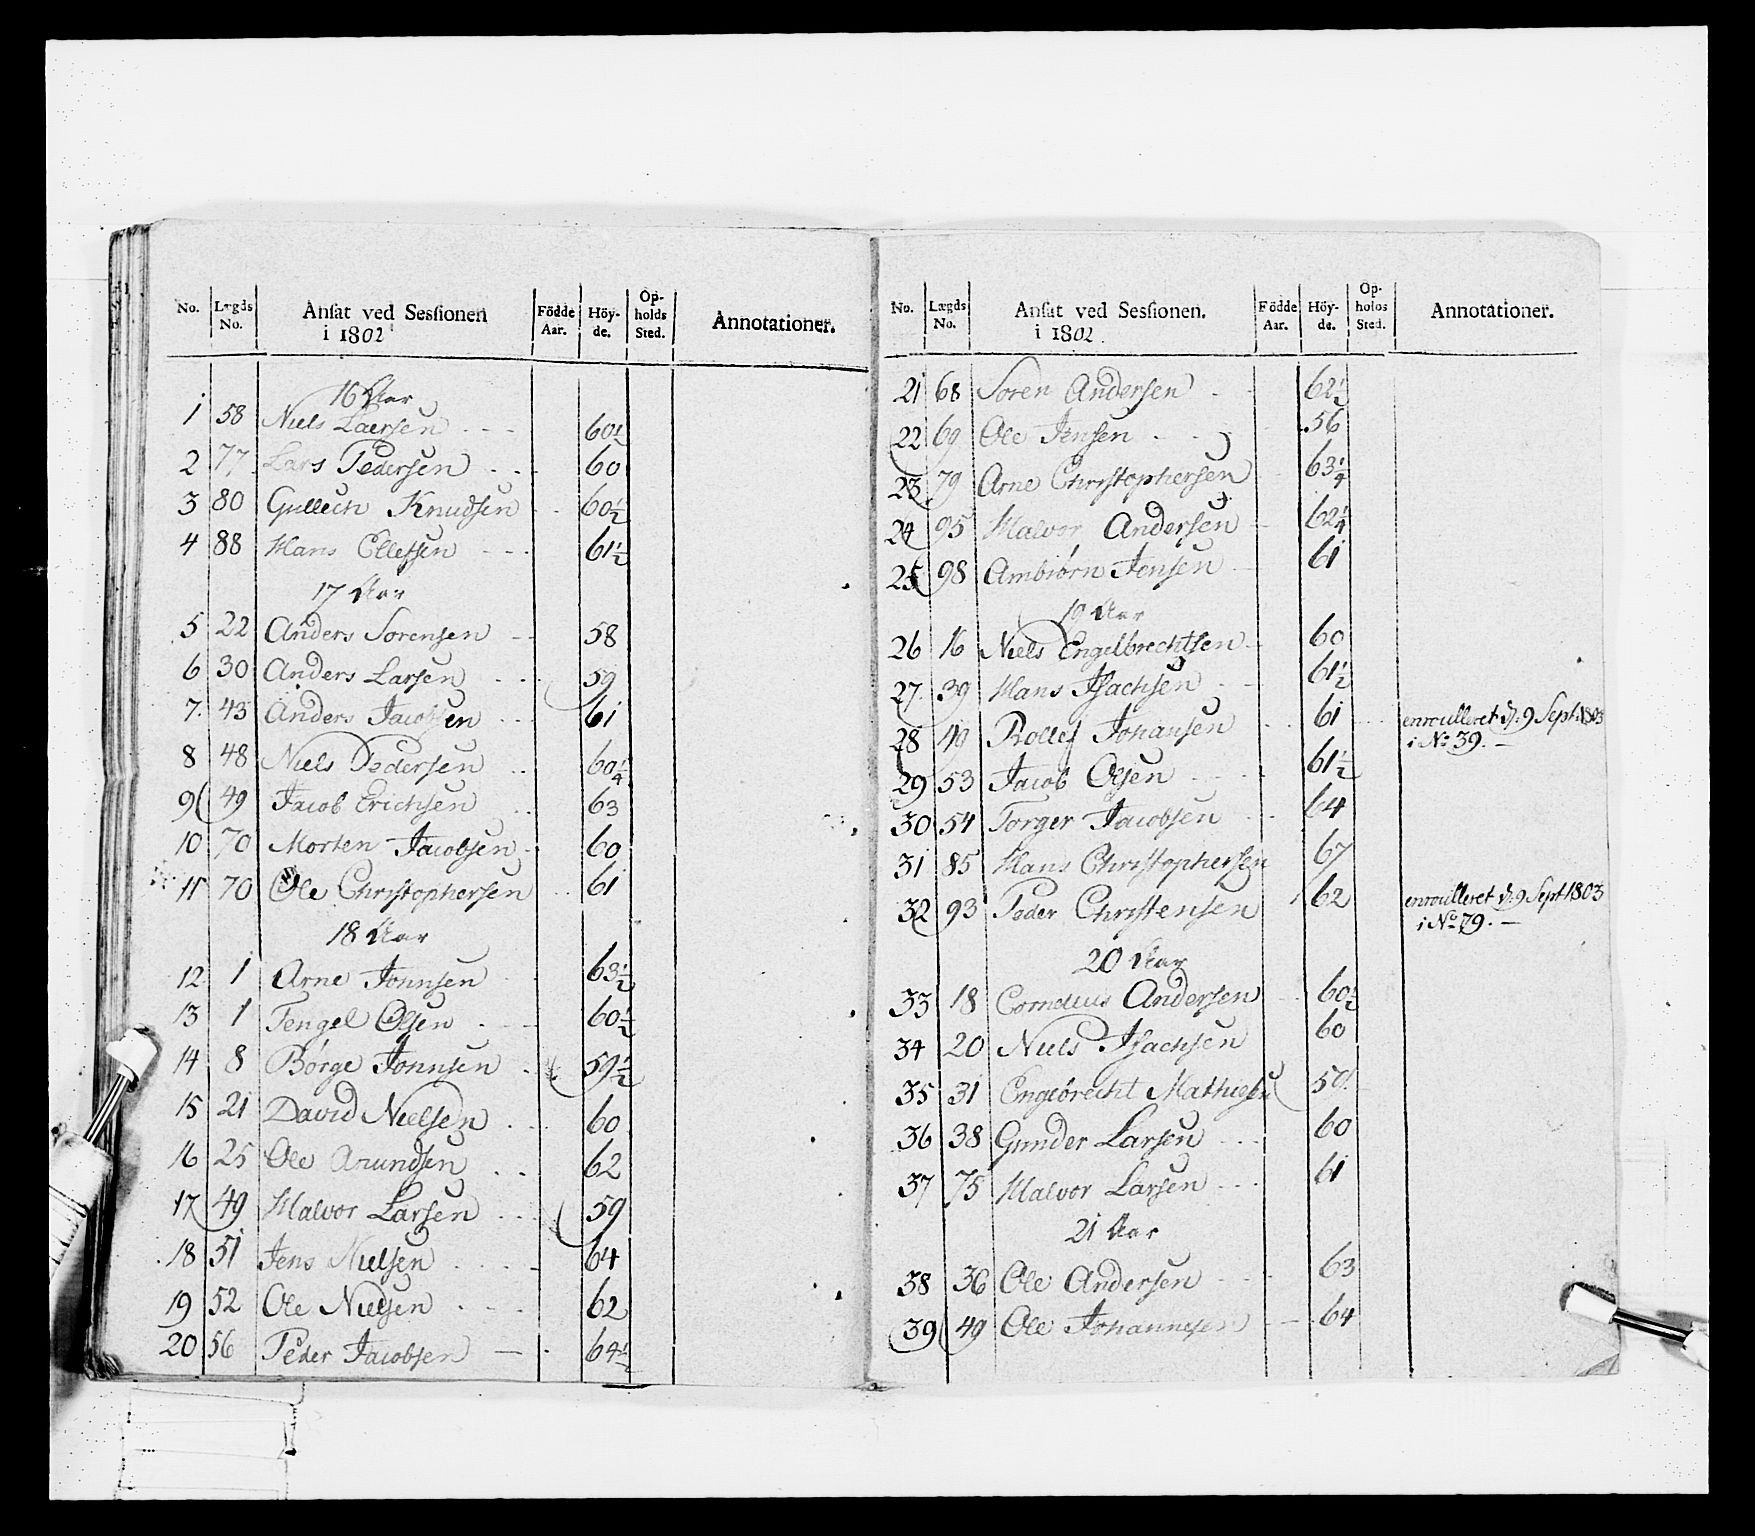 No. Lægds No. Ansat ved Sessionen i 1802 Födde Aar. Höy- de. Op- holds Sted. Annotationer.
16 Aar
1 58 Niels Laersen 60½
2 77 Lars Pedersen 60
3 80 Gullech Knudsen 60½
4 88 Hans Ellefsen 61½
17 Aar
5 22 Anders Sorensen 58
6 30 Anders Larsen 59
7. 43 Anders Jacobsen 61
8 48 Niels Pedersen 60¼
9 49 Jacob Erichsen 63
10 70 Morten Jacobsen 60
11 70 Ole Christophersen 61
18 Aar
12 1 Arne Jonnsen 63½
13 1 Tengel Olsen 60½
14 8 Börge Jonnsen 59½
15 21 David Nielsen 60
16 25 Ole Amundsen 62
17 49 Halvor Larsen 59
18 51 Jens Nielsen 64
19 52 Ole Nielsen 62
20 56 Peder Jacobsen 64½
No. Lægds No. Ansat ved Sessionen. i 1802. Födde Aar. Höy- de. Op- holds Sted. Annotationer.
21 68 Soren Andersen 62½
22 69 Ole Jensen 56
23 79 Arne Christophersen 63¼
24 95 Halvor Andersen 62¼
25 98 Ambiørn Jensen 61
19 Aar
26 16 Niels Engelbrechtsen 60
27. 39 Hans Isachsen 61½
28 49 Rollef Johansen 61 enroulleret d: 9 Sept: 1803
i No 39.
29 53 Jacob Olsen 61½
30 54 Torger Jacobsen 64
31 85 Hans Christophersen 67
32 93 Peder Christensen 62 enroulleret d: 9 Sept 1803
i No 79.
20 Aar
33 18 Cornelius Andersen 60½
34 20 Niels Isachsen 60
35 31 Engebrecht Mathiesen 50.
36 38 Gunder Larsen 60
37 75 Halvor Larsen 61
21 Aar
38 36 Ole Andersen 63
39 49 Ole Johannesen 64